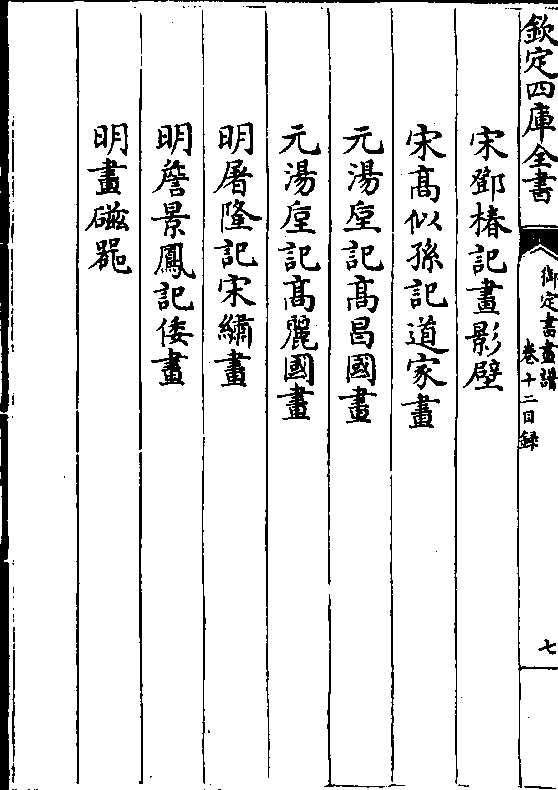 欽定四庫全書
御定書畫譜
卷十二目録
七
宋鄧椿記畫影壁
宋髙似孫記道家畫
元湯垕記髙昌國畫
元湯垕記髙麗國畫
明屠隆記宋繡畫
明詹景鳳記倭畫
明畫磁器